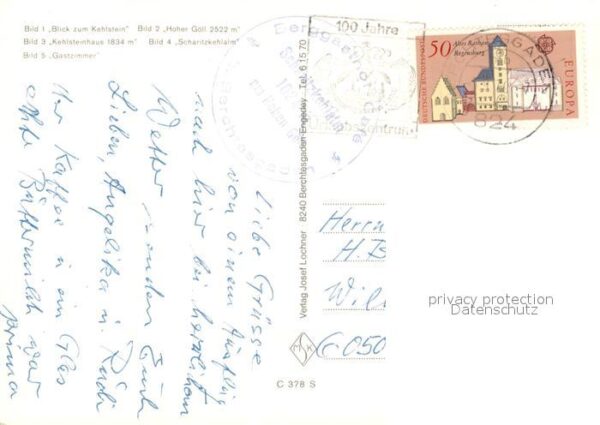 Bild 1 „Blick zum Kehlstein" Bild 2 „Hoher Göll 2522 m"
Bild 3 „Kehlsteinhaus 1834 m" Bild 4 „Scharitzkehlalm"
Bild 5 „Gastzimmer"
Liebe Grüsse
von einem Ausflug
nach hier bei herrlichem
Wetter senden Euch
Lieben, Angelika u. Rudi
Der Kaffee u ein Glas
echte Buttermilch war
prima
Verlag Josef Lochner 8240 Berchtesgaden Engedey Tel. 6 15 70
C 378 S
MSK
100 Jahre
50
Altes Rathaus
Regensburg
DEUTSCHE BUNDESPOST
EUROPA
CEPT
GADEN
824
Herrn
H. B
Wil
G-050
privacy protection
Datenschutz